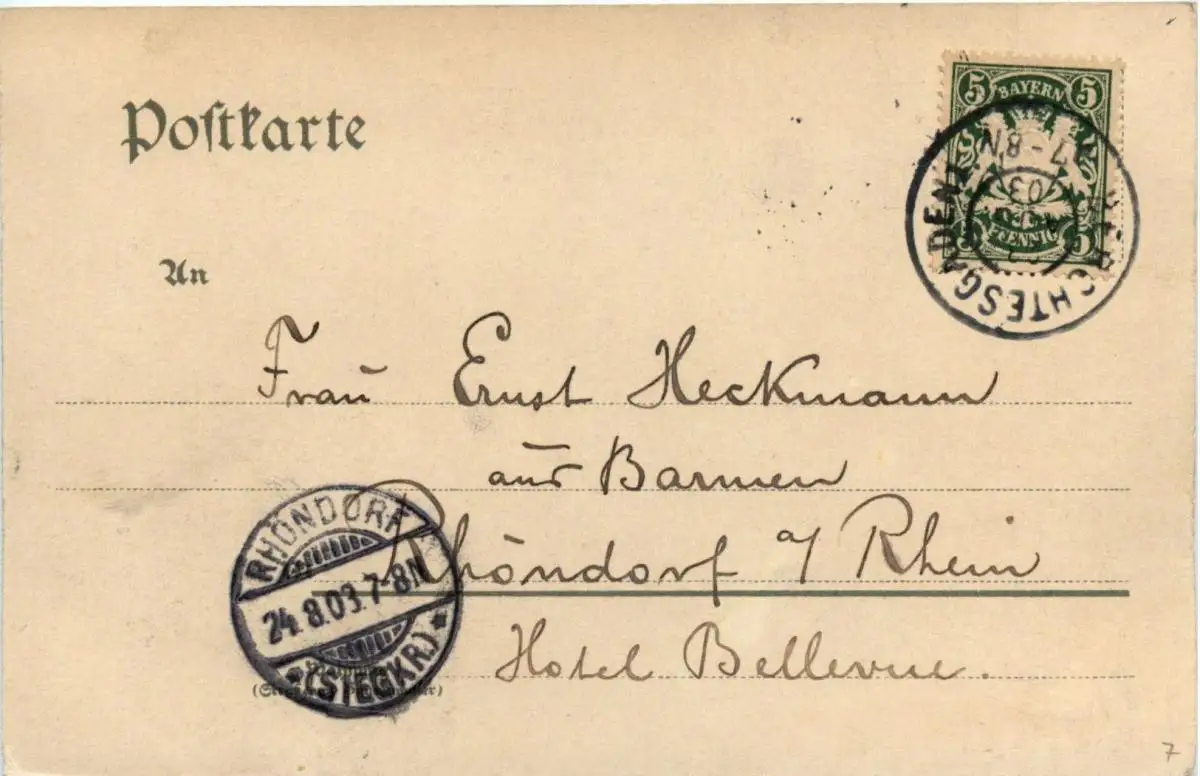 Postkarte
5 BAYERN 5
PFENNIG 5
BERCHTESGADEN
7-8N
03
An
Frau Ernst Heckmann
aus Barmen
Rhöndorf a/ Rhein
Hotel Bellevue.
RHÖNDORF
24.8.03.7-8N
* (SIEGKR.) *
7